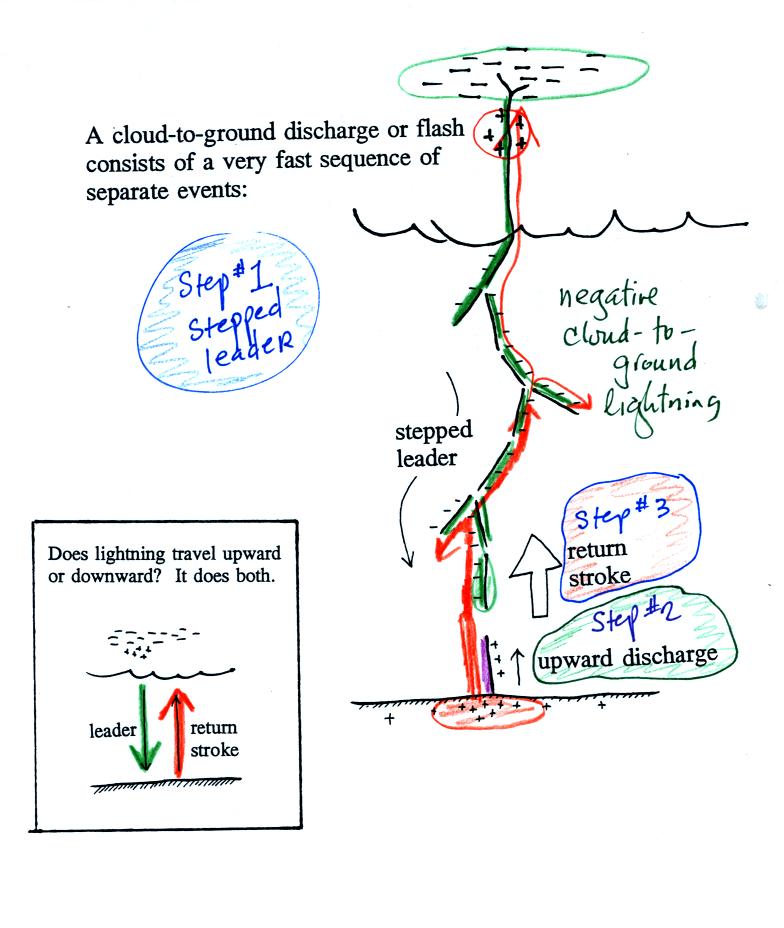 A cloud-to-ground discharge or flash
consists of a very fast sequence of
separate events:
Step #1
Stepped
leader
negative
cloud-to-
ground
lightning
stepped
leader
Step #3
return
stroke
Step #2
upward discharge
Does lightning travel upward
or downward? It does both.
leader
return
stroke